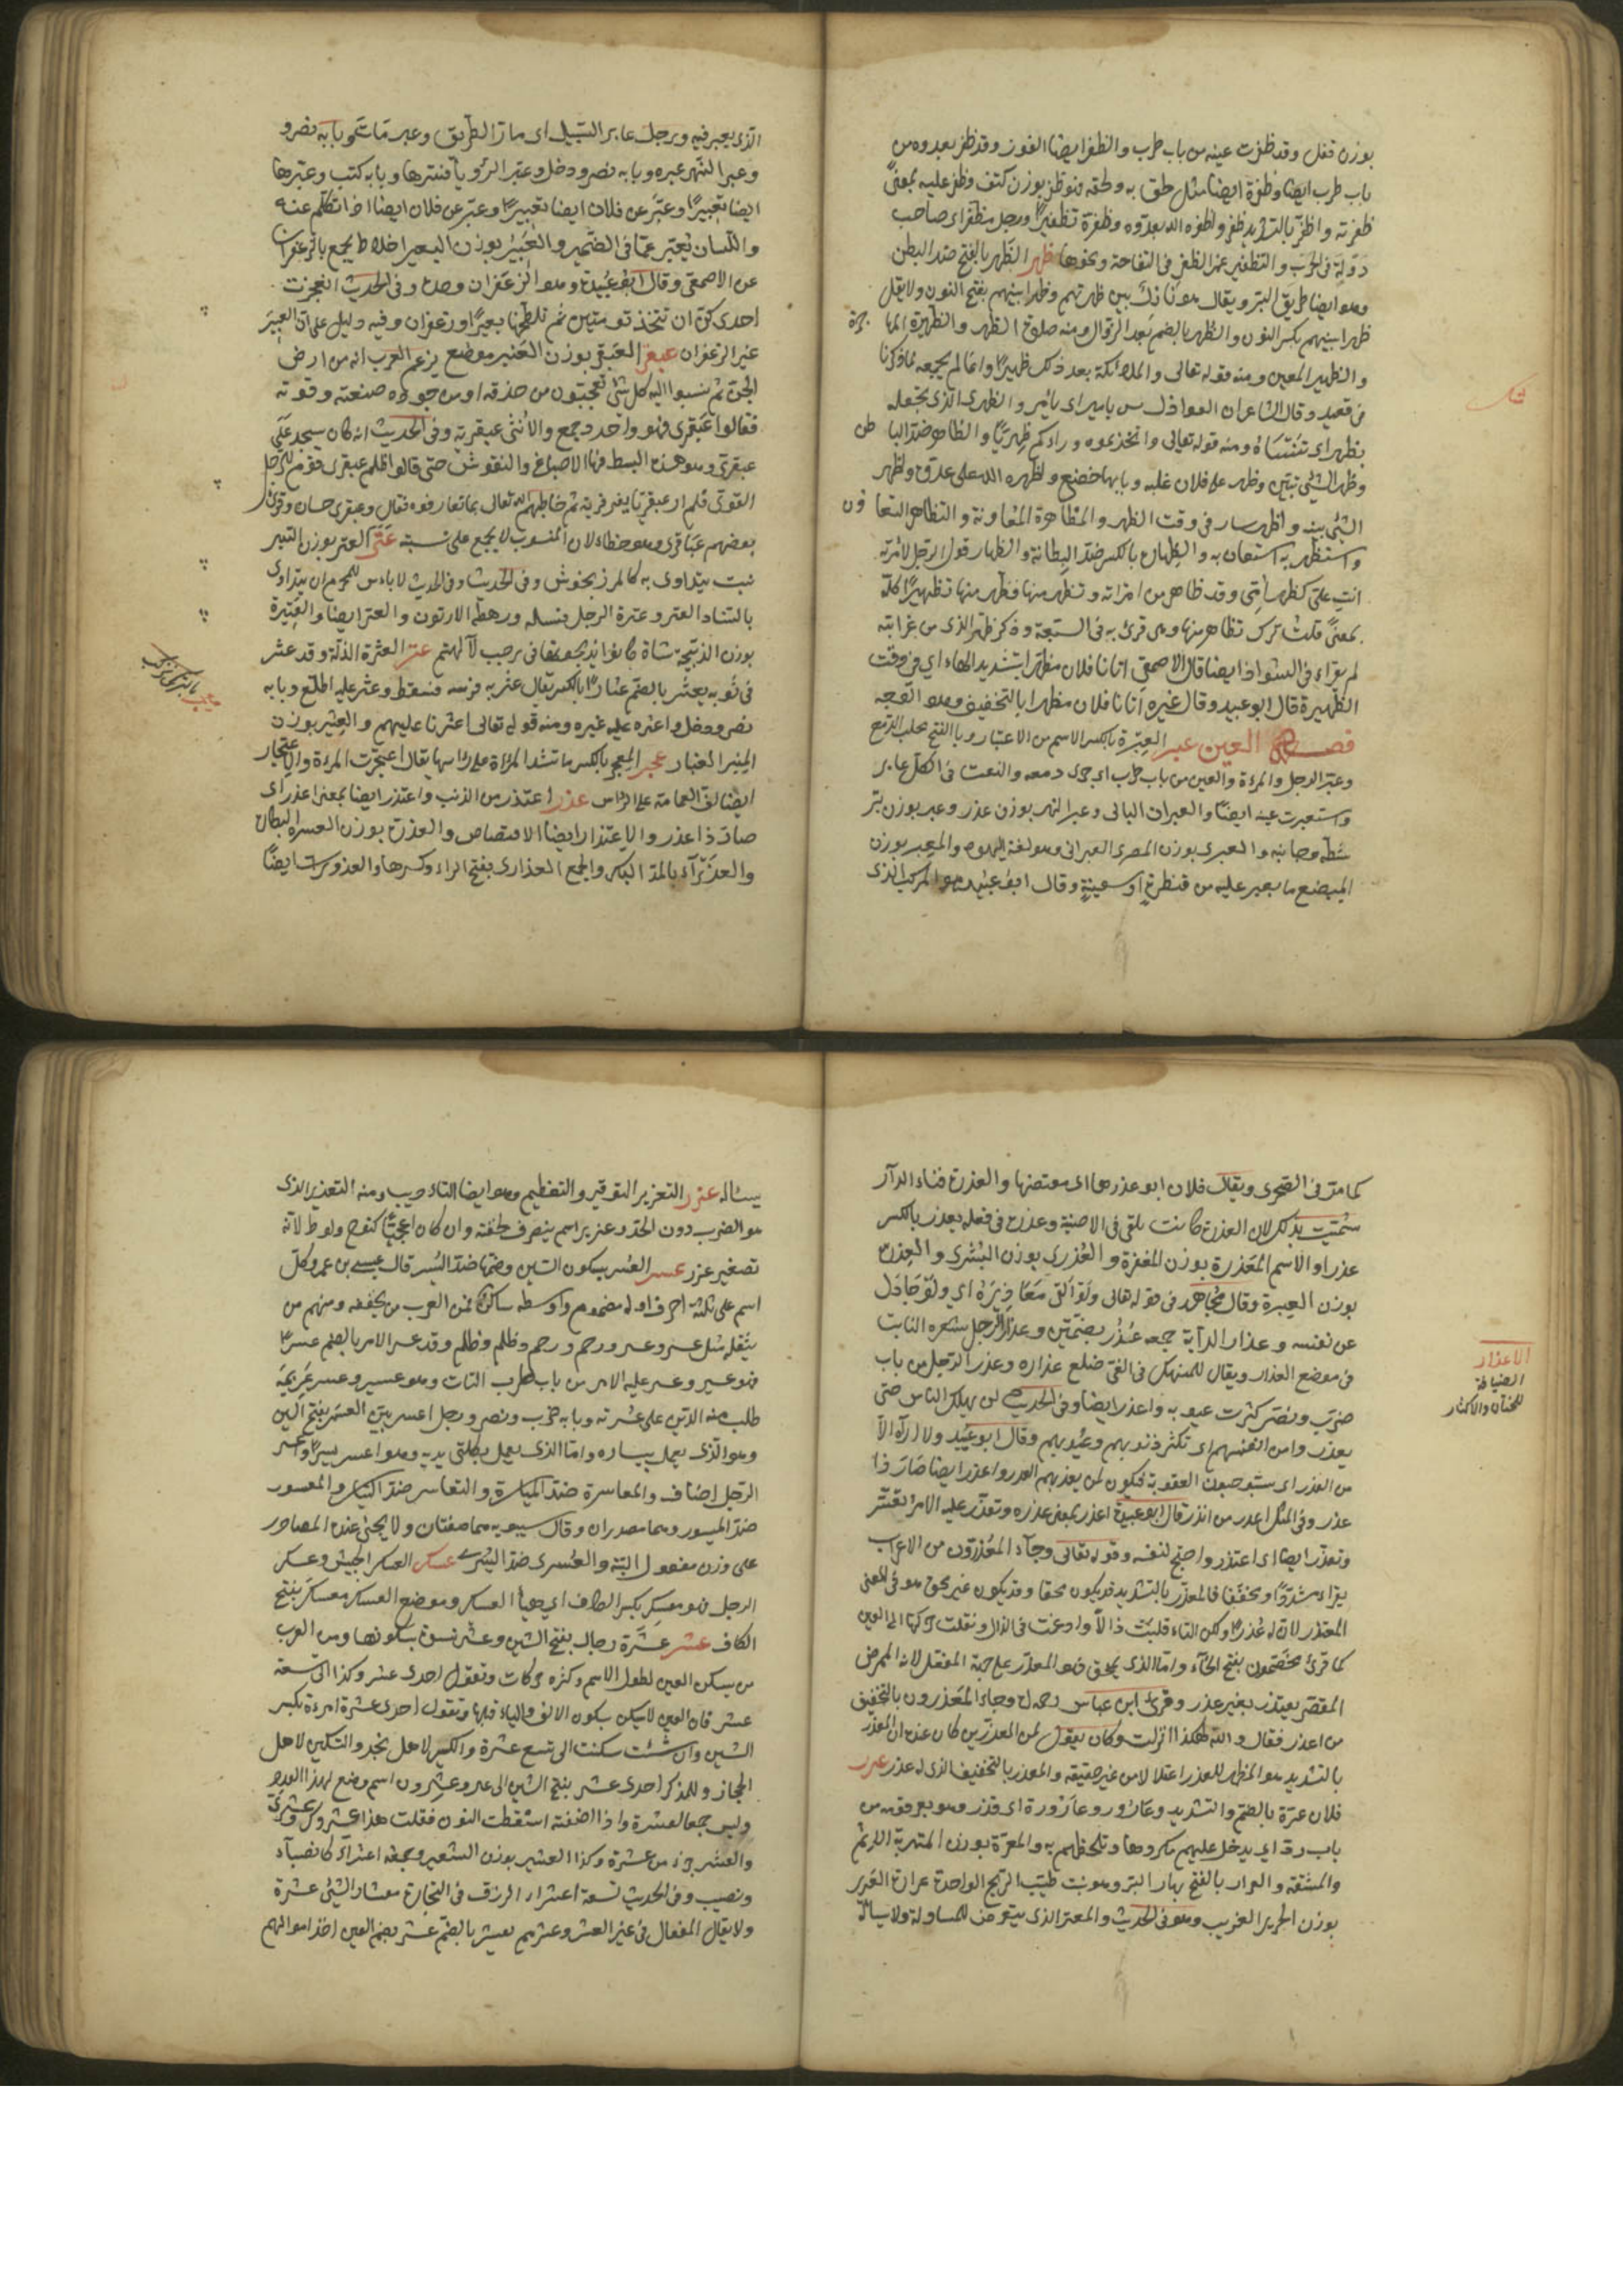 بوزن قفل وقد ظفرت عينه من باب طرب والظفر ايضا الفوز وقد ظفر بعدوه من
باب طرب ايضا وظفره ايضا مثل لحق به ولحقه فهو ظفر بوزن كتف وظفر عليه بمعنى
ظفر به واظفر بالتشديد ظفر واظفره الله بعدوه وظفره تظفيرا ورجل مظفر اى صاحب
دولة فى الحرب والتظفير غمز الظفر فى التفاحة ونحوها ظهر الظهر بالفتح ضد البطن
وهو ايضا طريق البر ويقال هو نازل بين ظهريهم وظهرانيهم بفتح النون ولا يقل
ظهرانيهم بكسر النون والظهر بالضم بعد الزوال ومنه صلوة الظهر والظهيرة الها جرة
والظهير المعين ومنه قوله تعالى والملائكة بعد ذلك ظهير وانما لم يجمعه لما ذكرنا
فى قعيد وقال الشاعر ان العواذل لسن بامير اى بامير والظهرى الذى تجعله
بظهر اى تنساه ومنه قوله تعالى واتخذتموه وراءكم ظهريا والظاهر ضد البا طن
وظهر الشئ تبين وظهر على فلان غلبه وبابهما خضع واظهره الله على عدوه واظهر
الشئ بينه واظهر سار فى وقت الظهر والمظاهرة المعاونة والتظاهر التعا ون
واستظهر به استعان به والظهارة بالكسر ضد البطانة والظهار قول الرجل لامرته
انت على كظهر امى وقد ظاهر من امراته وتظهر منها وظهر منها تظهيرا كله
بمعنى قلت ترك تظاهر منها وهى قرئ به فى السبعة وذكر ظهر الذى من غرابته
لم يقراء فى الشواذ ايضا قال الاصمعى اتانا فلان مظهرا بتشديد الهاء اي فى وقت
الظهيرة قال ابو عبيد وقال غيره اتانا فلان مظهرا بالتخفيف وهو الوجه
فصل العين عبر العبرة بالكسر الاسم من الاعتبار وبالفتح تحلب الدمع
وعبر الرجل والمرءة والعين من باب طرب اى جرى دمعه والنعت فى الكل عابر
واستعبرت عينه ايضا والعبران الباكى وعبر النهر بوزن عذر وعبر بوزن تبر
شطه وجانبه والعبرى بوزن المصرى العبرانى وهو لغة اليهود والمعبر بوزن
المبضع ما يعبر عليه من قنطرة او سفينة وقال ابو عبيد هو المركب الذى
الذى يعبر فيه ورجل عابر السبيل اى مار الطريق وعبر مات وبابه نصر و
وعبر النهر عبره وبابه نصر ودخل وعبر الرؤيا فسرها وبابه كتب وعبرها
ايضا تعبيرا وعبر عن فلان ايضا تعبيرا وعبر عن فلان ايضا اذا تكلم عنه
واللسان يعبر عما فى الضمير والعبير بوزن البعير اخلاط تجمع بالزعفران
عن الاصمعى وقال ابو عبيدة وهو الزعفران وحده وفى الحديث اتعجزت
احدى كن ان تتخذ تومتين ثم تلطخهما بعبير او زعفران وفيه دليل على ان العبير
غير الزعفران عبقر العبقر بوزن العنبر موضع يزعم العرب انه من ارض
الجن ثم نسبوا اليه كل شئ تعجبون من حذقه او من جودة صنعته وقوته
فقالوا عبقرى فهو واحد وجمع والانثى عبقرية وفى الحديث انه كان يسجد على
عبقرى وهو هذه البسط فيها الاصباغ والنقوش حتى قالوا ظلم عبقرى وهو للرجل
القوى فلم ار عبقريا يفرى فريه ثم خاطبهم الله تعالى بما تعارفوه فقال وعبقرى حسان وقرئ
بعضهم عباقرى وهو خطاء لان المنسوب لا يجمع على نسبته عتر العتر بوزن التبر
نبت يتداوى به كالمرزنجوش وفى الحديث لا باءس للمحرم ان يتداوى
بالسناء والعتر وعترة الرجل نسله ورهطه الادنون والعتر ايضا والعتيرة
بوزن الذبيحة شاة كانوا يذبحونها فى رجب لآلهتهم عثر العثرة الذلة وقد عثر
فى ثوبه يعثر بالضم عثارا بالكسر يقال عثر به فرسه فسقط وعثر عليه اطلع وبابه
نصر ودخل واعثره عليه غيره ومنه قوله تعالى اعثرنا عليهم والعثير بوزن
المنبر الغبار عجر المعجر بالكسر ما تشده المرأة على رأسها يقال اعتجرت المرءة والاعتجار
ايضا لف العمامة على الراس عذر اعتذر من الذنب واعتذر ايضا بمعنى اعذر اى
صار ذا عذر والاعتذار ايضا الاقتضاض والعذرة بوزن العسرة البكارة
والعذراء بالمد البكر والجمع العذارى بفتح الراء وكسرها والعذراوات ايضا
كما مر فى الصحرى ويقال فلان ابو عذرها اى مفتضها والعذرة فناء الدار
سميت بذلك لان العذرة كانت تلقى فى الافنية وعذره فى فعله يعذر بالكسر
عذرا والاسم المعذرة بوزن المغفرة والعذرى بوزن البشرى والعذرة
بوزن العبرة وقال مجاهد فى قوله تعالى ولو القى معاذيره اى ولو جادل
عن نفسه وعذار الدابة جمعه عذر بضمتين وعذار الرجل شعره النابت
فى موضع العذار ويقال للمنهمك فى الغى خلع عذاره وعذر الرجل من باب
ضرب ونصر كثرت عيوبه واعذر ايضا وفى الحديث لن يهلك الناس حتى
يعذروا من انفسهم اى تكثر ذنوبهم وعيوبهم وقال ابو عبيد ولا اراه الا
من العذر اى يستوجبون العقوبة فيكون لمن يعذبهم العذر واعذر ايضا صار ذا
عذر وفى المثل اعذر من انذر قال ابو عبيدة اعذر بمعنى عذره وتعذر عليه الامر تعسر
وتعذر ايضا اى اعتذر واحتج لنفسه وقوله تعالى وجاء المعذرون من الاعراب
يقراء مشددا ومخففا فالمعذر بالتشديد قد يكون محقا وقد يكون غير محق هو فى المعنى
المعتذر لان له عذرا ولكن التاء قلبت ذالا وادغمت فى الذال ونقلت حركتها الى العين
كما قرئ يخصمون بفتح الخاء واما الذى بمحق فهو المعذر على جهة المفعل لانه الممرض
المقصر يعتذر بغير عذر وقرئ ابن عباس رحمه الله وجاء المعذرون بالتخفيف
من اعذر فقال والله هكذا انزلت وكان يقول لعن المعذرين كان عنده ان المعذر
بالتشديد هو المظهر للعذر اعتلالا من غير حقيقته والمعذر بالتخفيف الذى له عذر عرر
فلان عرة بالضم والتشديد وعارور وعارورة اى قذر وهو يعر قومه من
باب رد اى يدخل عليهم مكروها وتلطخهم به والمعرة بوزن المتربة الاثم
والمشقة والعرار بالفتح بهار البر وهو نبت طيب الريح الواحدة عرارة العرير
بوزن الحرير الغريب وهو فى الحديث والمعتر الذى يتعرض للمساولة ولا يسال
الاعذار
الضيافة
للختان والاكثار
يساله عزر التعزير التوقير والتعظيم وهو ايضا التاءديب ومنه التعزير الذى
هو الضرب دون الحد وعزير اسم ينصرف لخفته وان كان اعجميا كنوح ولوط لانه
تصغير عزر عسر العسر بسكون السين وضمها ضد اليسر قال عيسى بن عمرو كل
اسم على ثلثة احرف اوله مضموم واوسطه ساكن فمن العرب من يخففه ومنهم من
يثقله مثل عسر وعسر ورحم ورحم وظلم وظلم وقد عسر الامر بالضم عسرا
فهو عسير وعسر عليه الامر من باب طرب التاث وهو عسير وعسر غريمه
طلب منه الدين على عسرته وبابه ضرب ونصر ورجل اعسر بين العسر بفتح السين
وهو الذى يعمل بيساره واما الذى يعمل بكلتى يديه وهو اعسر يسر واعسر
الرجل اضاف والمعاسرة ضد المياسرة والتعاسر ضد التياسر والمعسور
ضد الميسور وهما مصدران وقال سيبويه هما صفتان ولا يجئ عنده المصادر
على وزن مفعول البتة والعسرى ضد اليسرى عسكر العسكر الجيش وعسكر
الرجل فهو معسكر بكسر الكاف اى هيأ العسكر وموضع العسكر معسكر بفتح
الكاف عشر عشرة رجال بفتح الشين وعشر نسوة بسكونها ومن العرب
من يسكن العين لطول الاسم وكثرة حركات وتقول احدى عشر وكذا الى تسعة
عشر فان العين لا يسكن بسكون الالف والياء قبلها وتقول احدى عشرة امرءة بكسر
الشين وان شئت سكنت الى تسع عشرة والكسر لاهل نجد والتسكين لاهل
الحجاز وللمذكر احدى عشر بفتح الشين الى غير وعشرون اسم موضع لهذا العدد
وليس جمعا لعشرة واذا اضفته اسقطت النون فقلت هذا عشروك وعشرى
والعشر جزء من عشرة وكذا العشير بوزن الشعير وجمعه اعشراء كانصباء
ونصيب وفى الحديث تسعة اعشراء الرزق فى التجارة معشار الشئ عشرة
ولا يقال المفعال فى غير العشر وعشرهم يعشر بالضم عشر بضم العين اخذ اموالهم